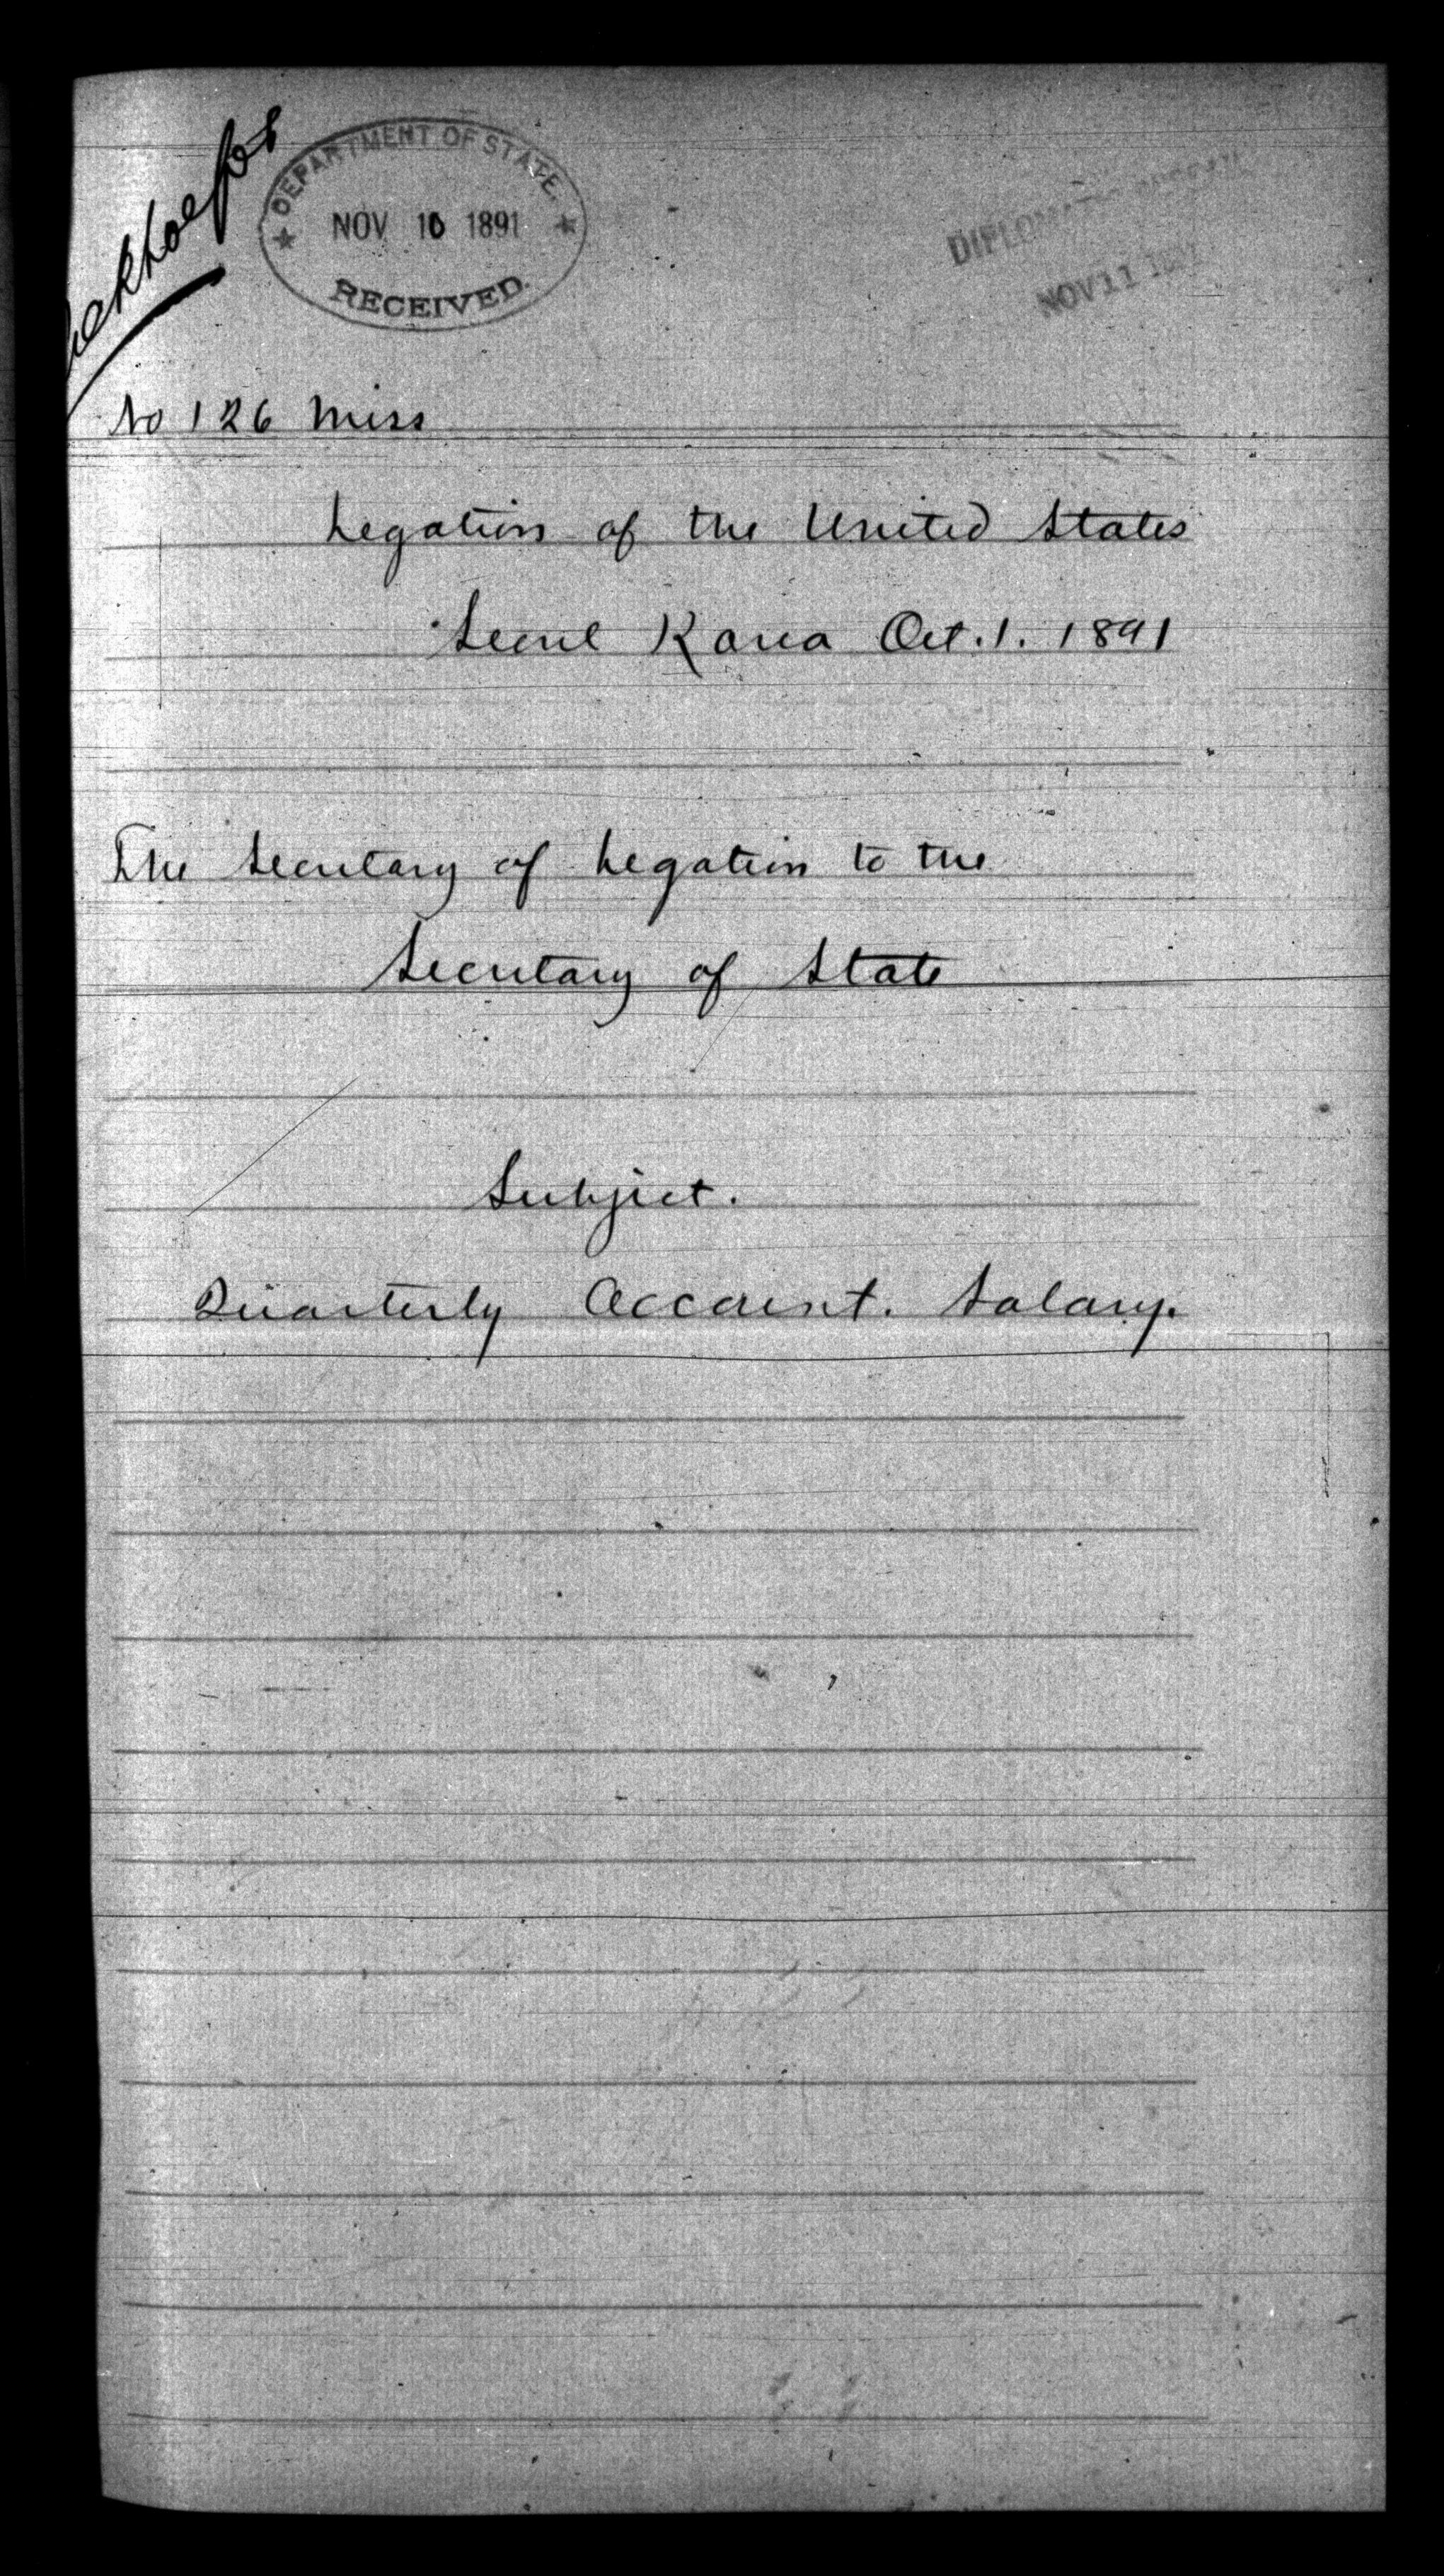 DEPARTMENT OF STATE.
NOV 10 1891
RECEIVED.
NOV 11 1891
No 126 Miss
Legation of the United States
Seoul Korea Oct. 1. 1891
The Secretary of Legation to the
Secretary of State
Subject.
Quarterly Account. Salary.